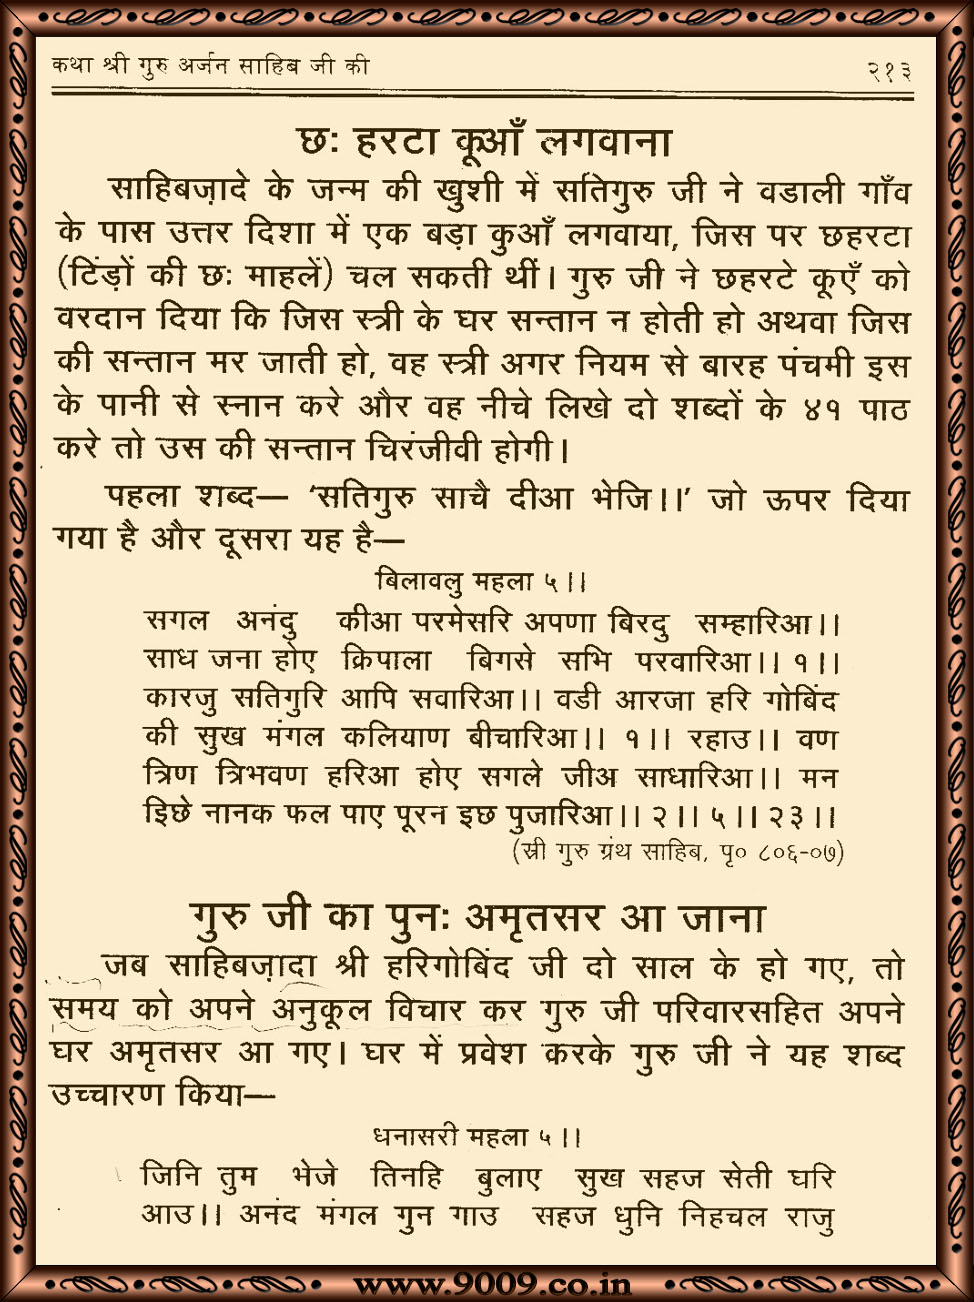 कथा श्री गुरु अर्जन साहिब जी की २१३
छः हरटा कूआँ लगवाना
साहिबज़ादे के जन्म की खुशी में सतिगुरु जी ने वडाली गाँव
के पास उत्तर दिशा में एक बड़ा कुआँ लगवाया, जिस पर छहरटा
(टिंड़ों की छः माहलें) चल सकती थीं। गुरु जी ने छहरटे कूएँ को
वरदान दिया कि जिस स्त्री के घर सन्तान न होती हो अथवा जिस
की सन्तान मर जाती हो, वह स्त्री अगर नियम से बारह पंचमी इस
के पानी से स्नान करे और वह नीचे लिखे दो शब्दों के ४१ पाठ
करे तो उस की सन्तान चिरंजीवी होगी।
पहला शब्द— ‘सतिगुरु साचै दीआ भेजि।।’ जो ऊपर दिया
गया है और दूसरा यह है—
बिलावलु महला ५।।
सगल अनंदु कीआ परमेसरि अपणा बिरदु सम्हारिआ।।
साध जना होए क्रिपाला बिगसे सभि परवारिआ।। १।।
कारजु सतिगुरि आपि सवारिआ।। वडी आरजा हरि गोबिंद
की सुख मंगल कलियाण बीचारिआ।। १।। रहाउ।। वण
त्रिण त्रिभवण हरिआ होए सगले जीअ साधारिआ।। मन
इिछे नानक फल पाए पूरन इछ पुजारिआ।। २।। ५।। २३।।
(स्री गुरु ग्रंथ साहिब, पृ० ८०६-०७)
गुरु जी का पुनः अमृतसर आ जाना
जब साहिबज़ादा श्री हरिगोबिंद जी दो साल के हो गए, तो
समय को अपने अनुकूल विचार कर गुरु जी परिवारसहित अपने
घर अमृतसर आ गए। घर में प्रवेश करके गुरु जी ने यह शब्द
उच्चारण किया—
धनासरी महला ५।।
जिनि तुम भेजे तिनहि बुलाए सुख सहज सेती घरि
आउ।। अनंद मंगल गुन गाउ सहज धुनि निहचल राजु
www.9009.co.in